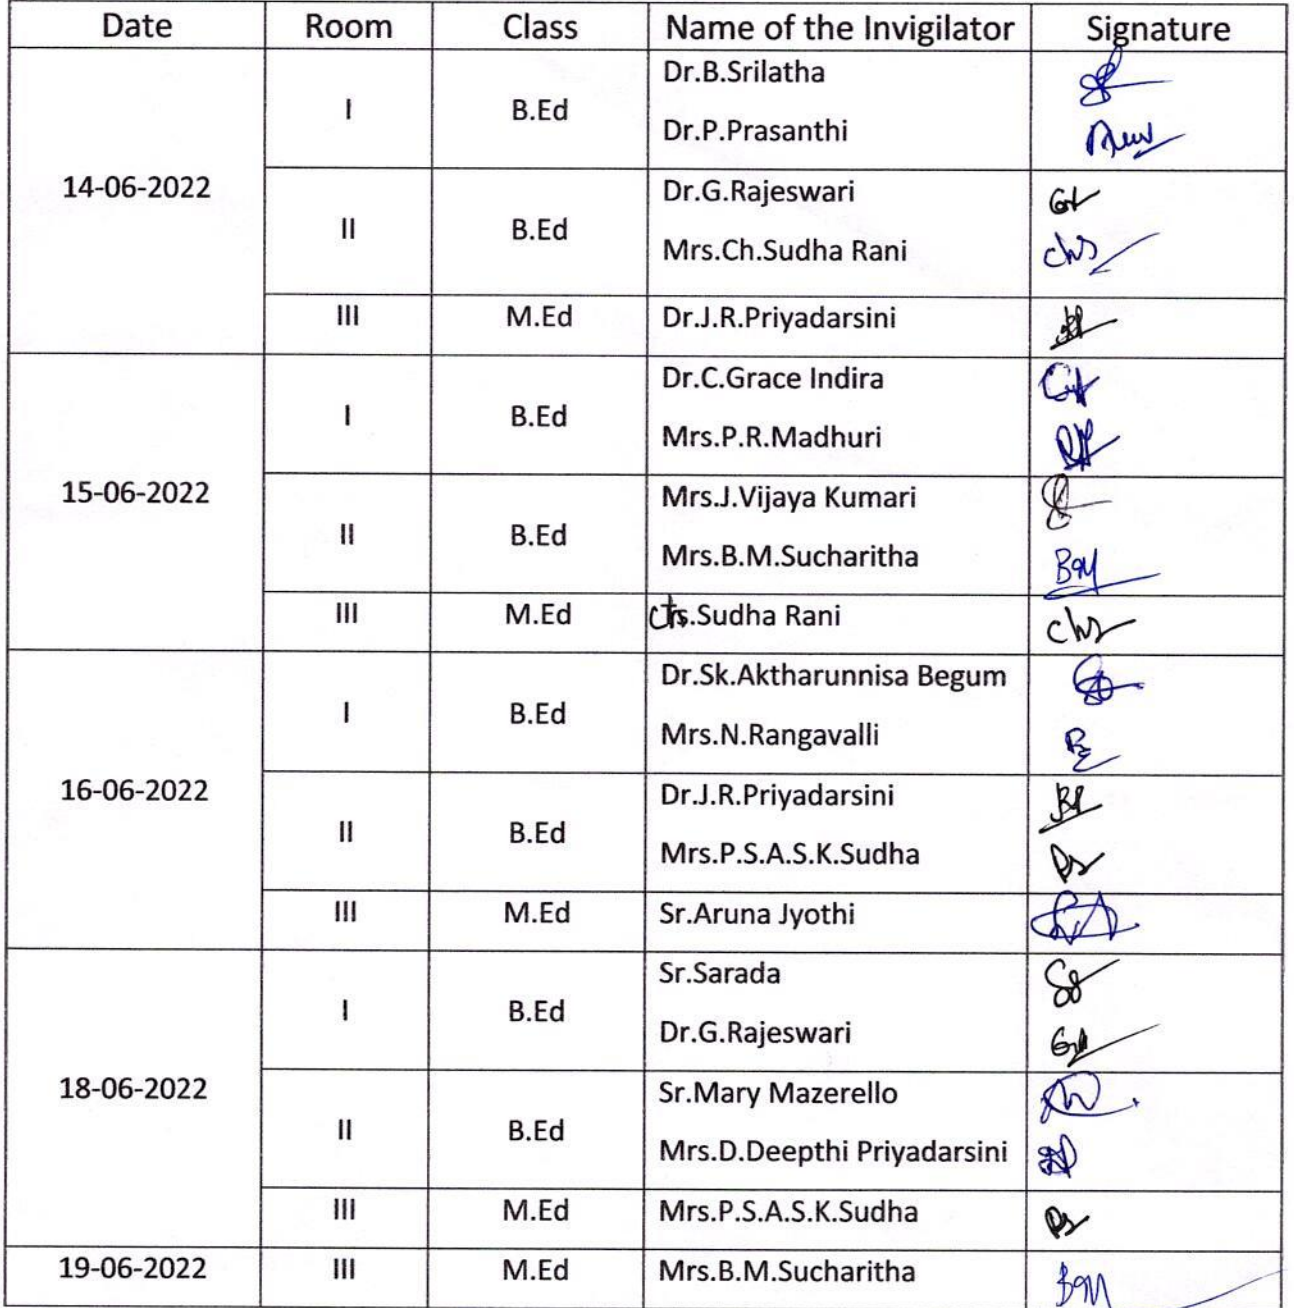 Date Room Class Name of the Invigilator Signature
14-06-2022
I B.Ed Dr.B.Srilatha
Dr.P.Prasanthi
II B.Ed Dr.G.Rajeswari
Mrs.Ch.Sudha Rani chs
III M.Ed Dr.J.R.Priyadarsini
15-06-2022
I B.Ed Dr.C.Grace Indira
Mrs.P.R.Madhuri
II B.Ed Mrs.J.Vijaya Kumari
Mrs.B.M.Sucharitha
III M.Ed .Sudha Rani chs
16-06-2022
I B.Ed Dr.Sk.Aktharunnisa Begum
Mrs.N.Rangavalli
II B.Ed Dr.J.R.Priyadarsini
Mrs.P.S.A.S.K.Sudha
III M.Ed Sr.Aruna Jyothi
18-06-2022
I B.Ed Sr.Sarada
Dr.G.Rajeswari
II B.Ed Sr.Mary Mazerello
Mrs.D.Deepthi Priyadarsini
III M.Ed Mrs.P.S.A.S.K.Sudha
19-06-2022 III M.Ed Mrs.B.M.Sucharitha